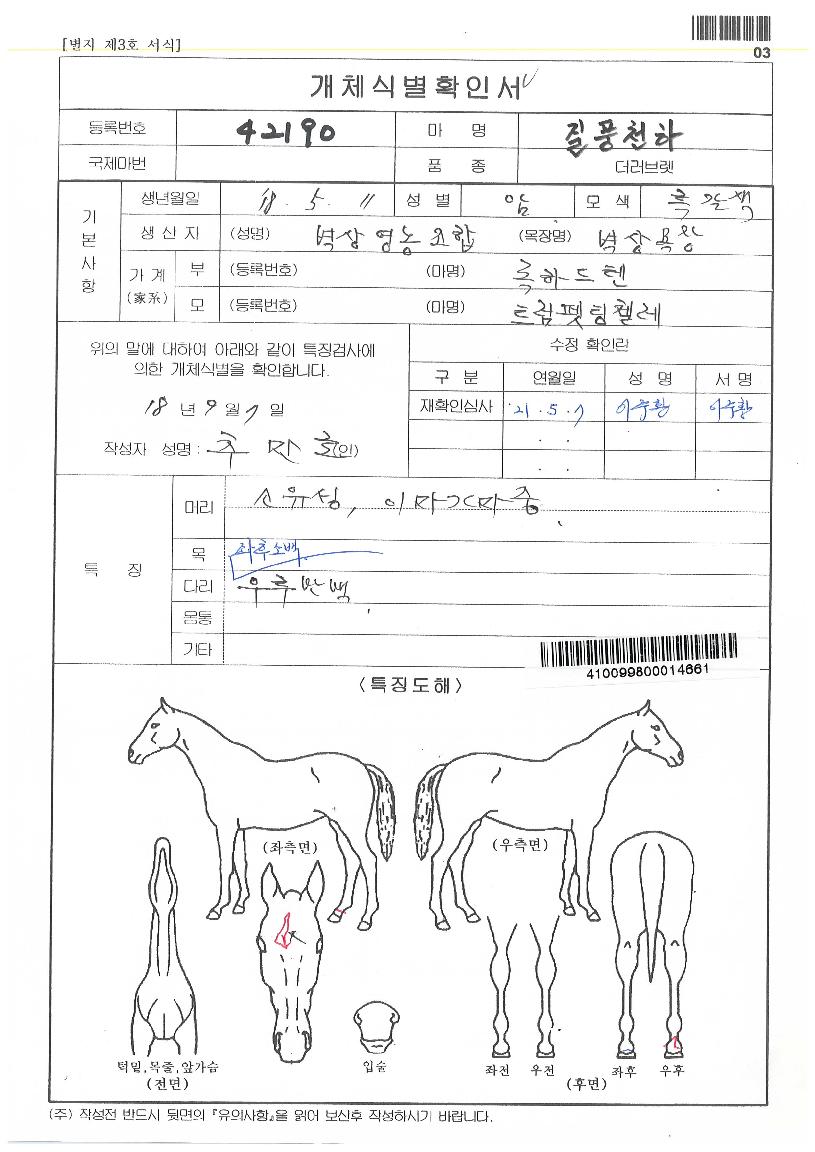 [별지 제3호 서식]
03
개체식별확인서
등록번호 42190 마 명 질풍천하
국제마번 품 종 더러브렛
기본사항
생년월일 '18. 5. 11 성 별 암 모 색 흑갈색
생 산 자 (성명) 벽상영농조합 (목장명) 벽상목장
가 계 (家系) 부 (등록번호) (마명) 록하드텐
모 (등록번호) (마명) 트럼펫팅첼레
위의 말에 대하여 아래와 같이 특징검사에
의한 개체식별을 확인합니다.
18 년 9 월 7 일
작성자 성명 : 추만호 (인)
수정 확인란
구 분 연월일 성 명 서 명
재확인심사 '21 . 5 . 7
. .
. .
특 징
머리 소유성, 이마가마중
목
좌후소백
다리 우후반백
몸통
기타
410099800014661
<특징도해>
(좌측면) (우측면)
턱밑,목줄,앞가슴 입술 좌전 우전 좌후 우후
(전면) (후면)
(주) 작성전 반드시 뒷면의 『유의사항』을 읽어 보신후 작성하시기 바랍니다.